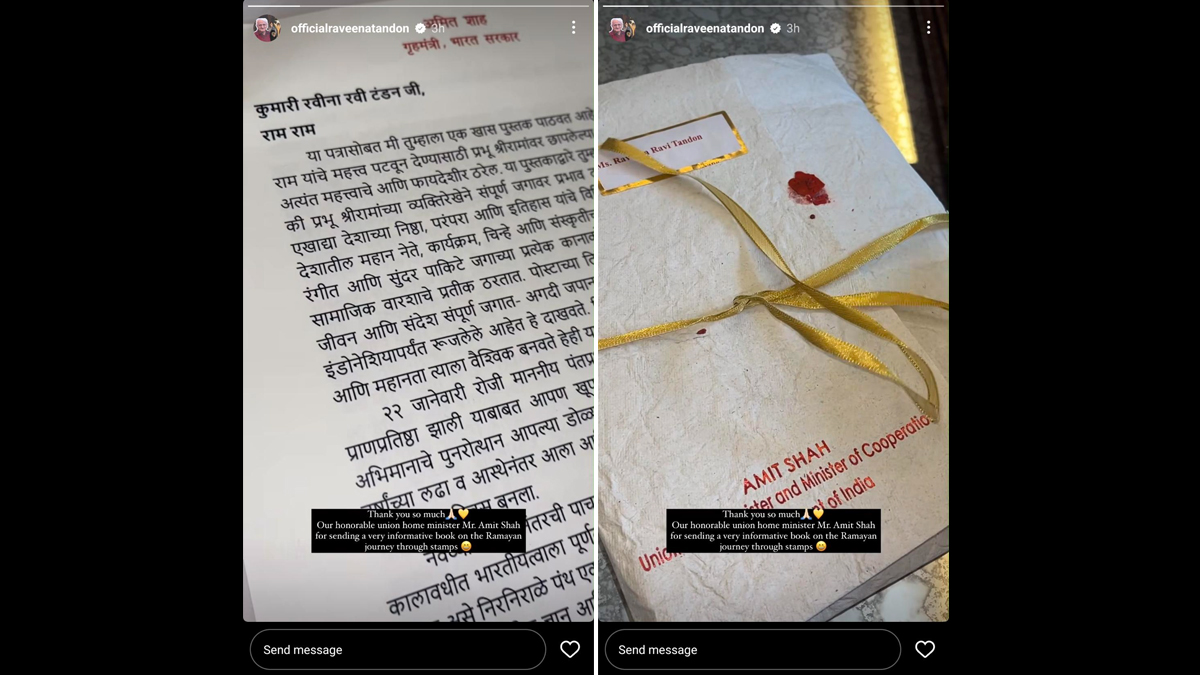 officialraveenatandon 3h
अमित शाह
गृहमंत्री, भारत सरकार
कुमारी रवीना रवी टंडन जी,
राम राम
या पत्रासोबत मी तुम्हाला एक खास पुस्तक पाठवत आहे
राम यांचे महत्त्व पटवून देण्यासाठी प्रभू श्रीरामांवर छापलेल्या
अत्यंत महत्त्वाचे आणि फायदेशीर ठरेल. या पुस्तकाद्वारे
की प्रभू श्रीरामांच्या व्यक्तिरेखेने संपूर्ण जगावर प्रभाव
एखाद्या देशाच्या निष्ठा, परंपरा आणि इतिहास यांचे
देशातील महान नेते, कार्यक्रम, चिन्हे आणि
रंगीत आणि सुंदर पाकिटे जगाच्या प्रत्येक
सामाजिक वारशाचे प्रतीक ठरतात. पोस्टाच्या
जीवन आणि संदेश संपूर्ण जगात- अगदी
इंडोनेशियापर्यंत रूजलेले आहेत हे दाखवते.
आणि महानता त्याला वैश्विक बनवते हेही
२२ जानेवारी रोजी माननीय
प्राणप्रतिष्ठा झाली याबाबत आपण खूप
अभिमानाचे पुनरोत्थान आपल्या
लढा व आस्थेनंतर आला
बनला.
Thank you so much🙏🏻💛
Our honorable union home minister Mr. Amit Shah
for sending a very informative book on the Ramayan
journey through stamps 😀
कालावधीत भारतीयत्वाला पूर्ण
असे निरनिराळे पंथ
Send message
officialraveenatandon 3h
Ravi Tandon
AMIT SHAH
and Minister of Cooperation
of India
Thank you so much🙏🏻💛
Our honorable union home minister Mr. Amit Shah
for sending a very informative book on the Ramayan
journey through stamps 😀
Send message